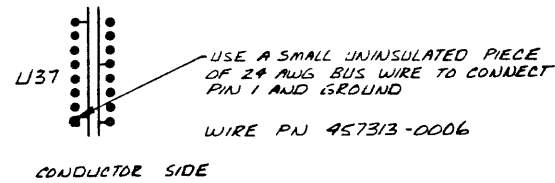 U37
USE A SMALL UNINSULATED PIECE
OF 24 AWG BUS WIRE TO CONNECT
PIN 1 AND GROUND
WIRE PN 457313-0006
CONDUCTOR SIDE